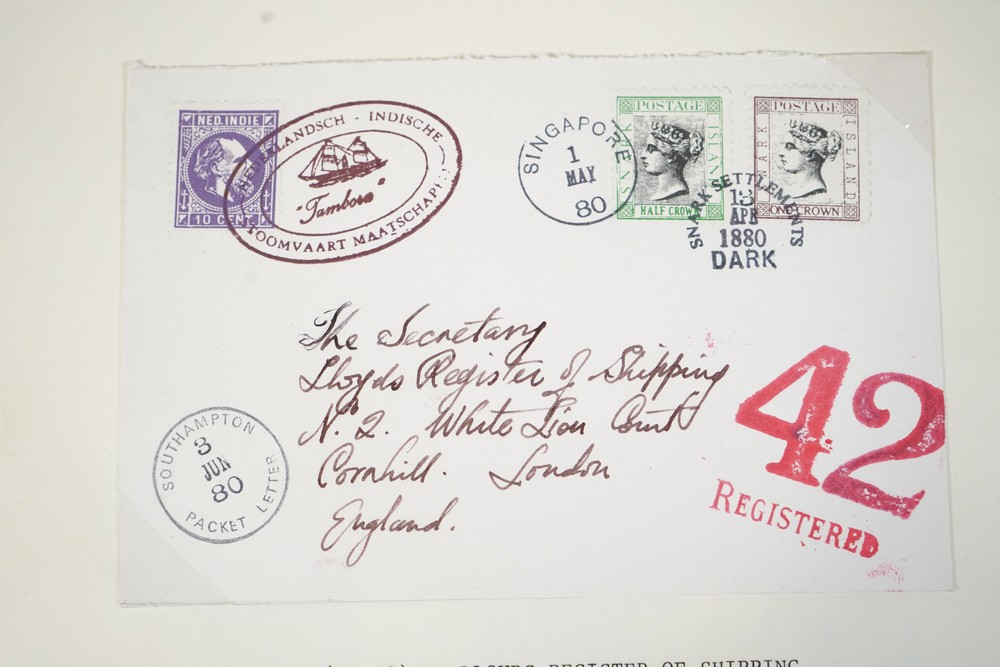 NED. INDIE
10 CENT.
NEDERLANDSCH - INDISCHE
"Tambora"
STOOMVAART MAATSCHAPPIJ
SINGAPORE
1
MAY
80
POSTAGE
SNARK ISLAND
HALF CROWN
POSTAGE
SNARK ISLAND
ONE CROWN
SNARK SETTLEMENTS
13
APR
1880
DARK
The Secretary
Lloyds Register of Shipping
No. 2. White Lion Court
Cornhill. London
England.
SOUTHAMPTON
3
JUN
80
PACKET LETTER
42
REGISTERED
REGISTER OF SHIPPING